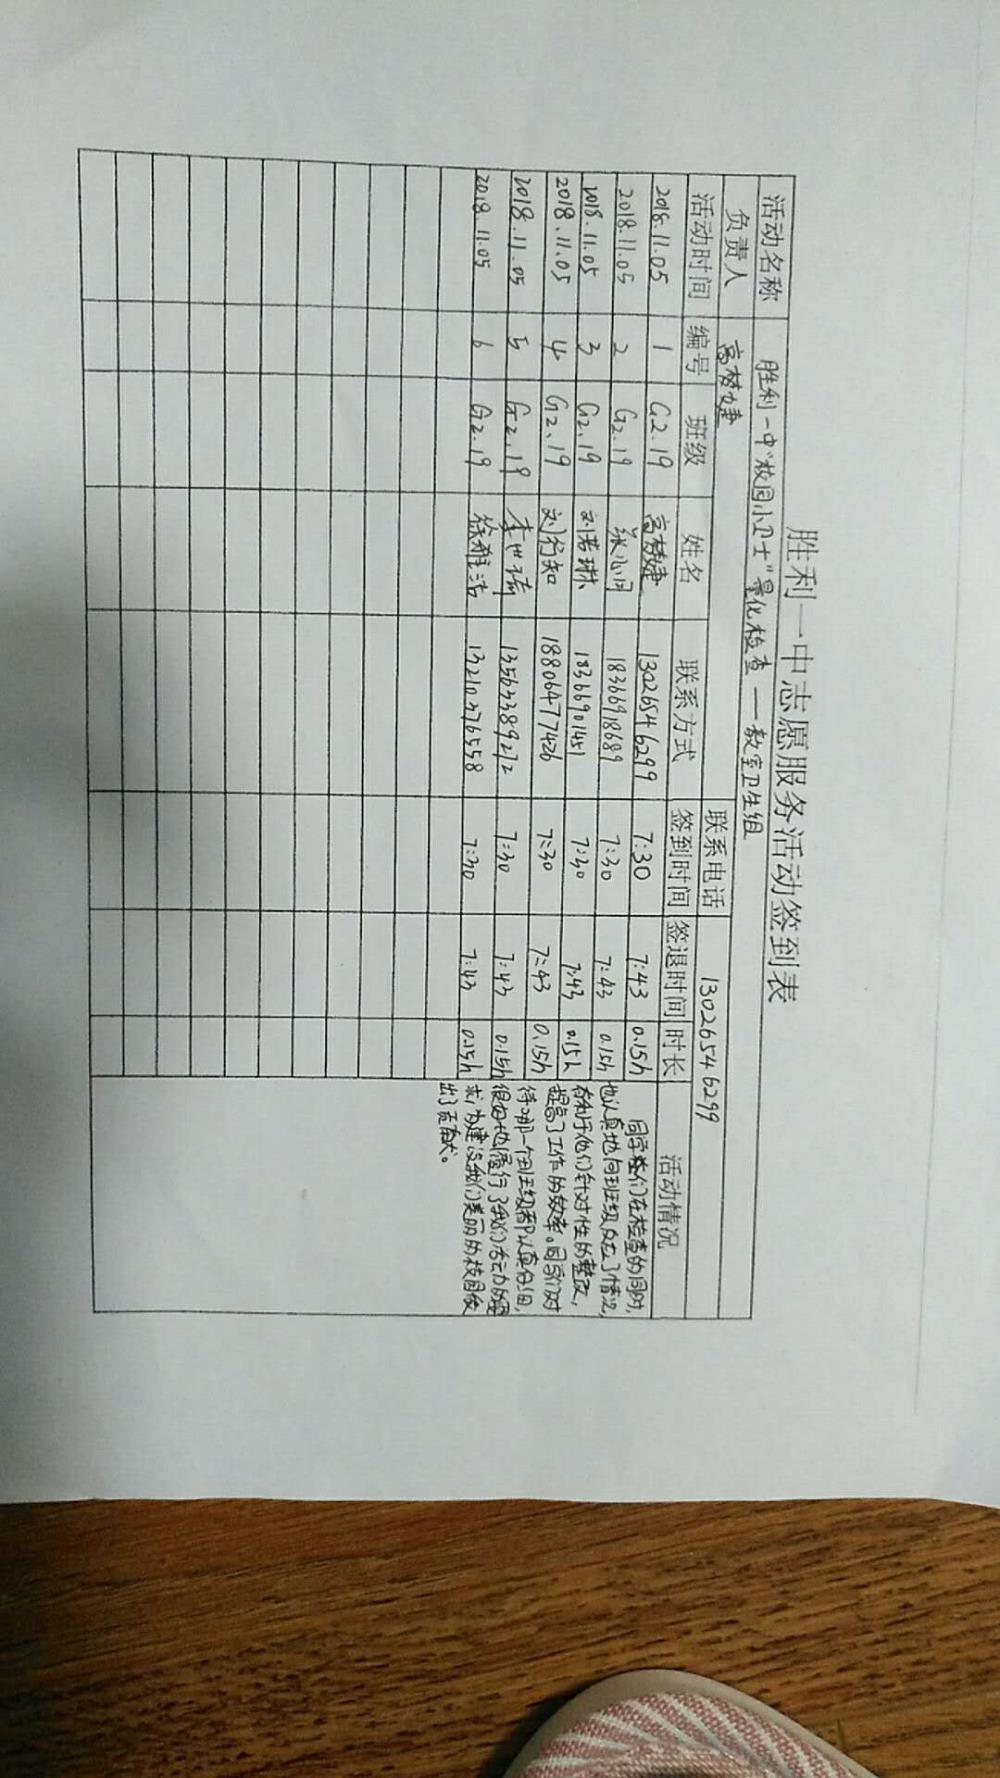 胜利一中志愿服务活动签到表
活动名称 胜利一中"校园小卫士"量化检查—教室卫生组
负责人 高梦婕 联系电话 13026546299
活动时间 编号 班级 姓名 联系方式 签到时间 签退时间 时长 活动情况
2018.11.05 1 G2.19 高梦婕 13026546299 7:30 7:43 0.15h
2018.11.05 2 G2.19 18366918689 7:30 7:43 0.15h
2018.11.05 3 G2.19 刘若琳 18366901451 7:30 7:43 0.15h
2018.11.05 4 G2.19 刘行知 18806477426 7:30 7:43 0.15h
2018.11.05 5 G2.19 李世琦 13563389272 7:30 7:43 0.15h
2018.11.05 6 G2.19 徐雅洁 13210376558 7:30 7:43 0.15h
同学们在检查的同时,
也认真地向班级反应了情况,
有利于他们针对性的整改,
提高了工作的效率。同学们对
待哪一个班级都认真仔细,
很好地履行了我们活动的要
求,为建设我们美丽的校园做
出了贡献。